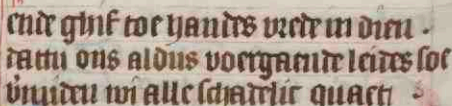 ende ghif toe handes vrede in dien ·
dattu ons aldus voergaende leides soe
v̄miden wi alle schadelic quaet